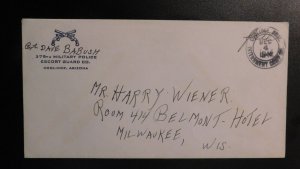 Cpl. DAVE BABUSH
MILITARY POLICE
ESCORT GUARD CO.
ARIZONA
DEC
4
MR. HARRY WIENER
ROOM 414 BELMONT HOTEL
MILWAUKEE, WIS.